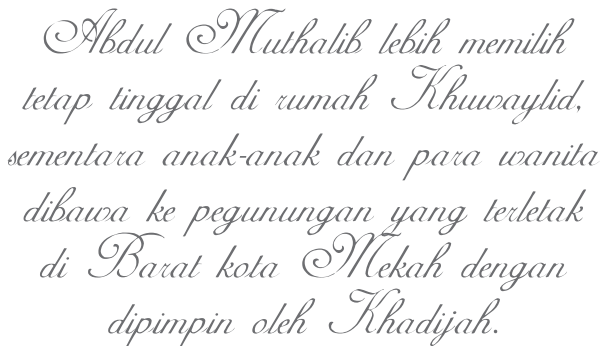 Abdul Muthalib lebih memilih
tetap tinggal di rumah Khuwaylid,
sementara anak-anak dan para wanita
dibawa ke pegunungan yang terletak
di Barat kota Mekah dengan
dipimpin oleh Khadijah.